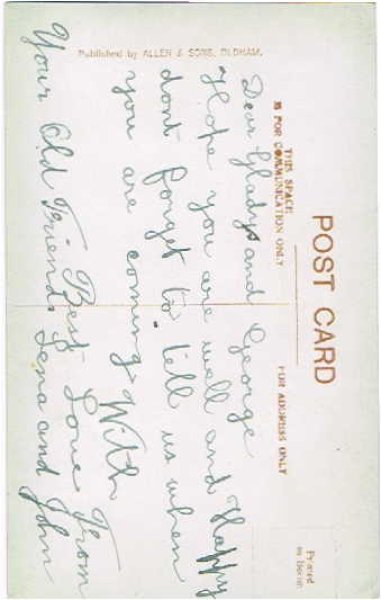 POST CARD
THIS SPACE
IS FOR COMMUNICATION ONLY
FOR ADDRESS ONLY
Printed
in Berlin
Published by ALLEN & SONS, OLDHAM.
Dear Gladys and George
Hope you are well and Happy
dont forget to tell us when
you are coming. With
Best Love From
Your Old Friends Lena and John